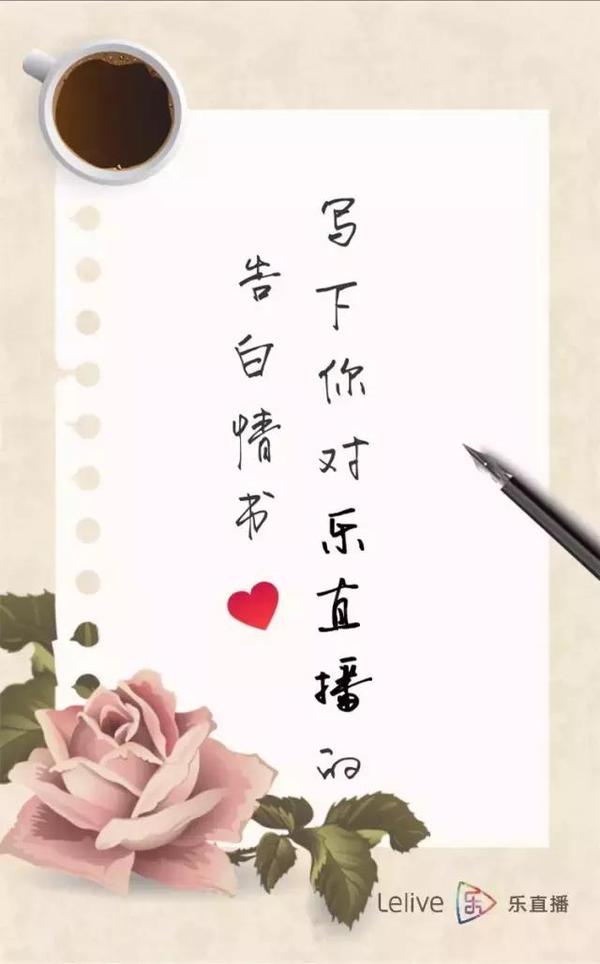 写下你对乐直播的
告白情书
Lelive 乐 乐直播